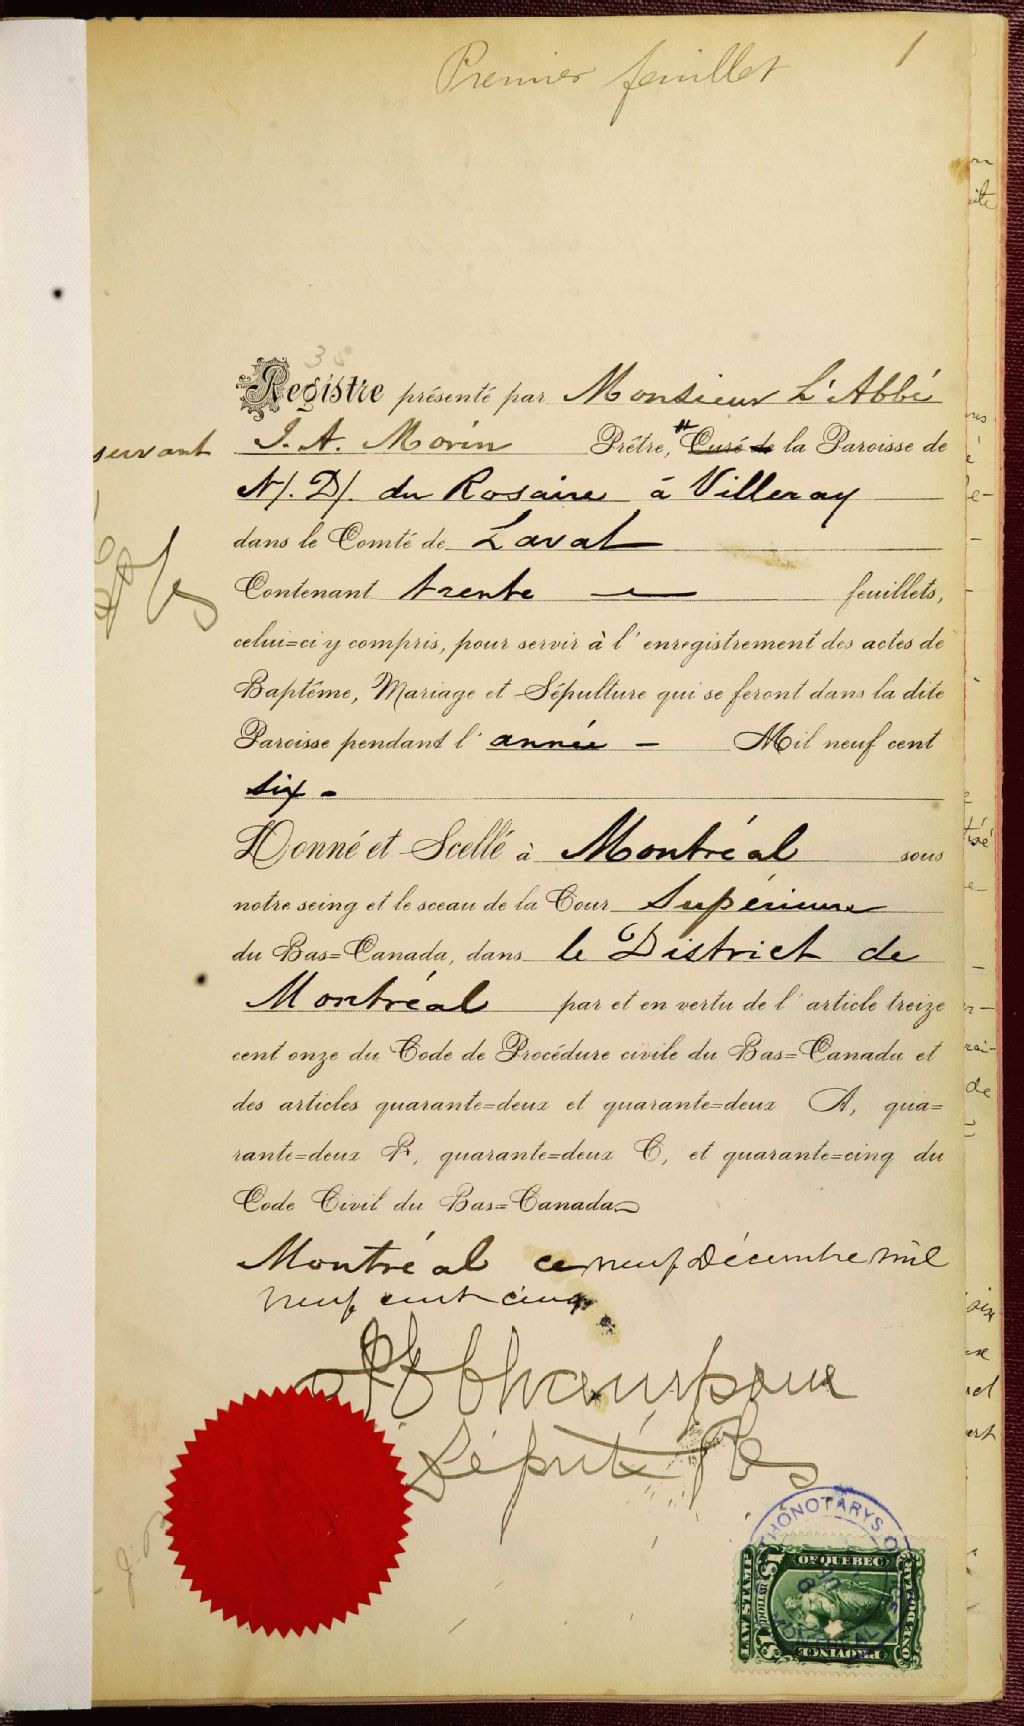 Premier feuillet 1
Registre présenté par Monsieur L'Abbé
servant J. A. Morin Prêtre, # Curé de la Paroisse de
N/. D/. du Rosaire à Villeray
dans le Comté de Laval
Contenant trente feuillets,
celui=ci y compris, pour servir à l'enregistrement des actes de
Baptême, Mariage et Sépulture qui se feront dans la dite
Paroisse pendant l'année - Mil neuf cent
six -
Donné et Scellé à Montréal sous
notre seing et le sceau de la Cour Supérieure
du Bas=Canada, dans le District de
Montréal par et en vertu de l'article treize
cent onze du Code de Procédure civile du Bas=Canada et
des articles quarante=deux et quarante=deux A, qua=
rante=deux B, quarante=deux C, et quarante=cinq du
Code Civil du Bas=Canada
Montréal ce neuf Décembre mil
neuf cent cinq
Député
THONOTARYS
MONTREAL
LAW STAMP
OF QUEBEC
$1 DOLLAR
PROVINCE